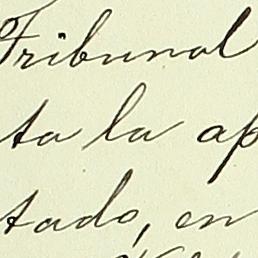 Tribunal
ta la ap
tado, en